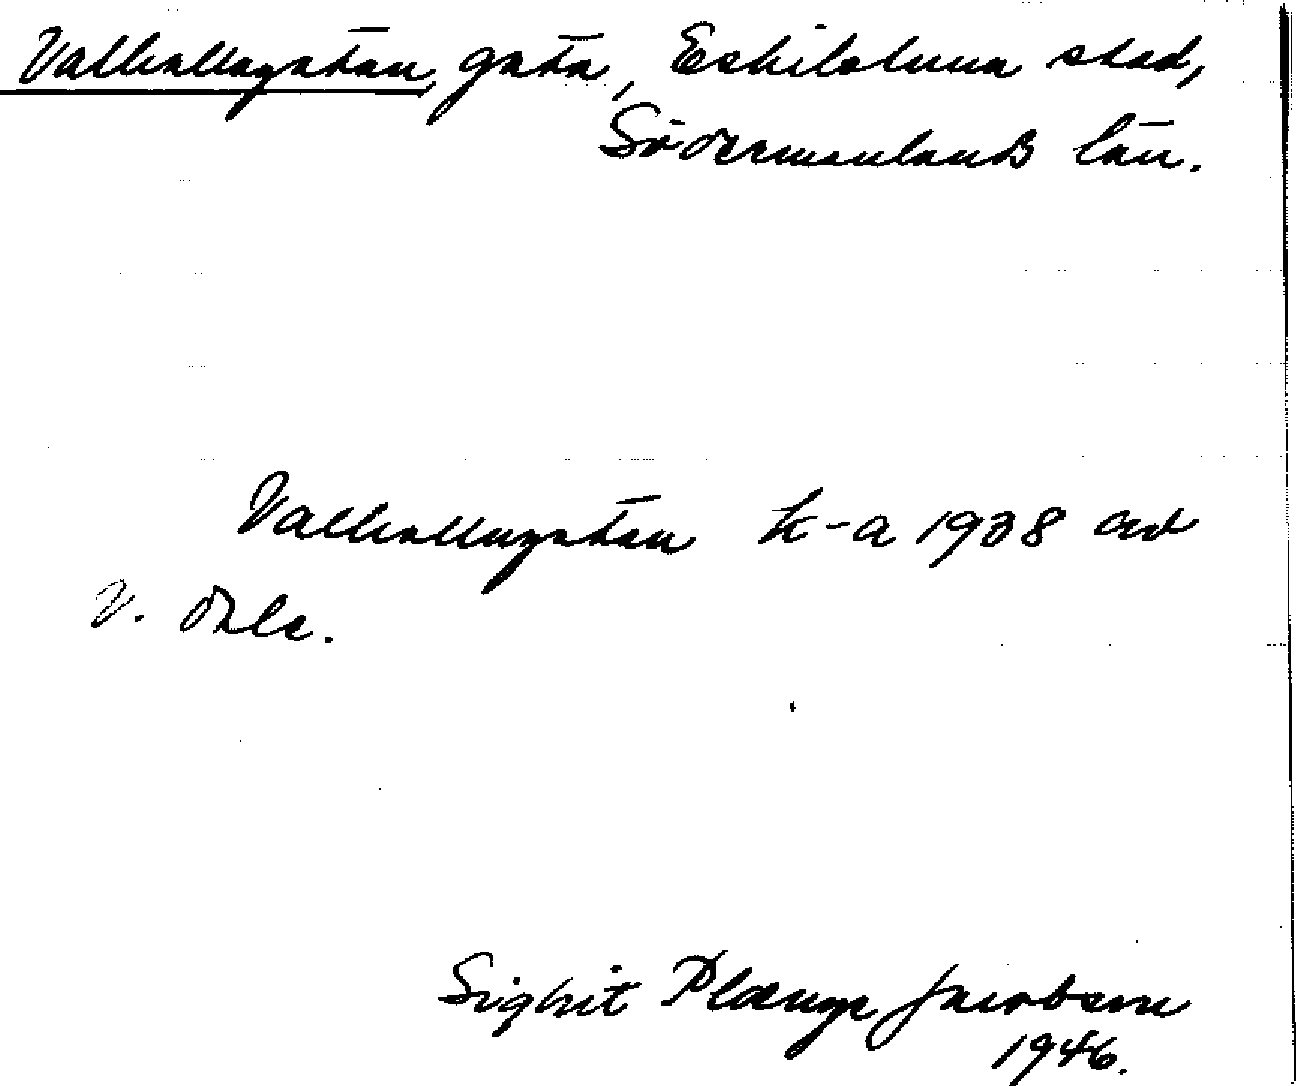 Valhallagatan, gata, Eskilstuna stad,
Södermanlands län.
Valhallagatan k-a 1938 av
V. Ohls.
Sigbrit Plænge Jacobson
1946.